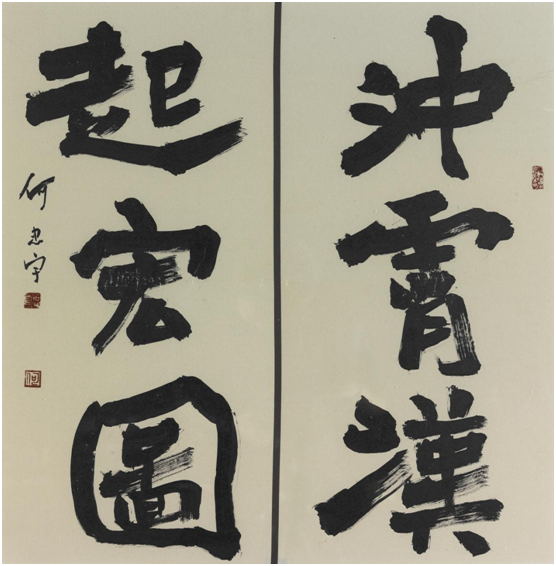 沖霄漢
起宏圖
何忠宇